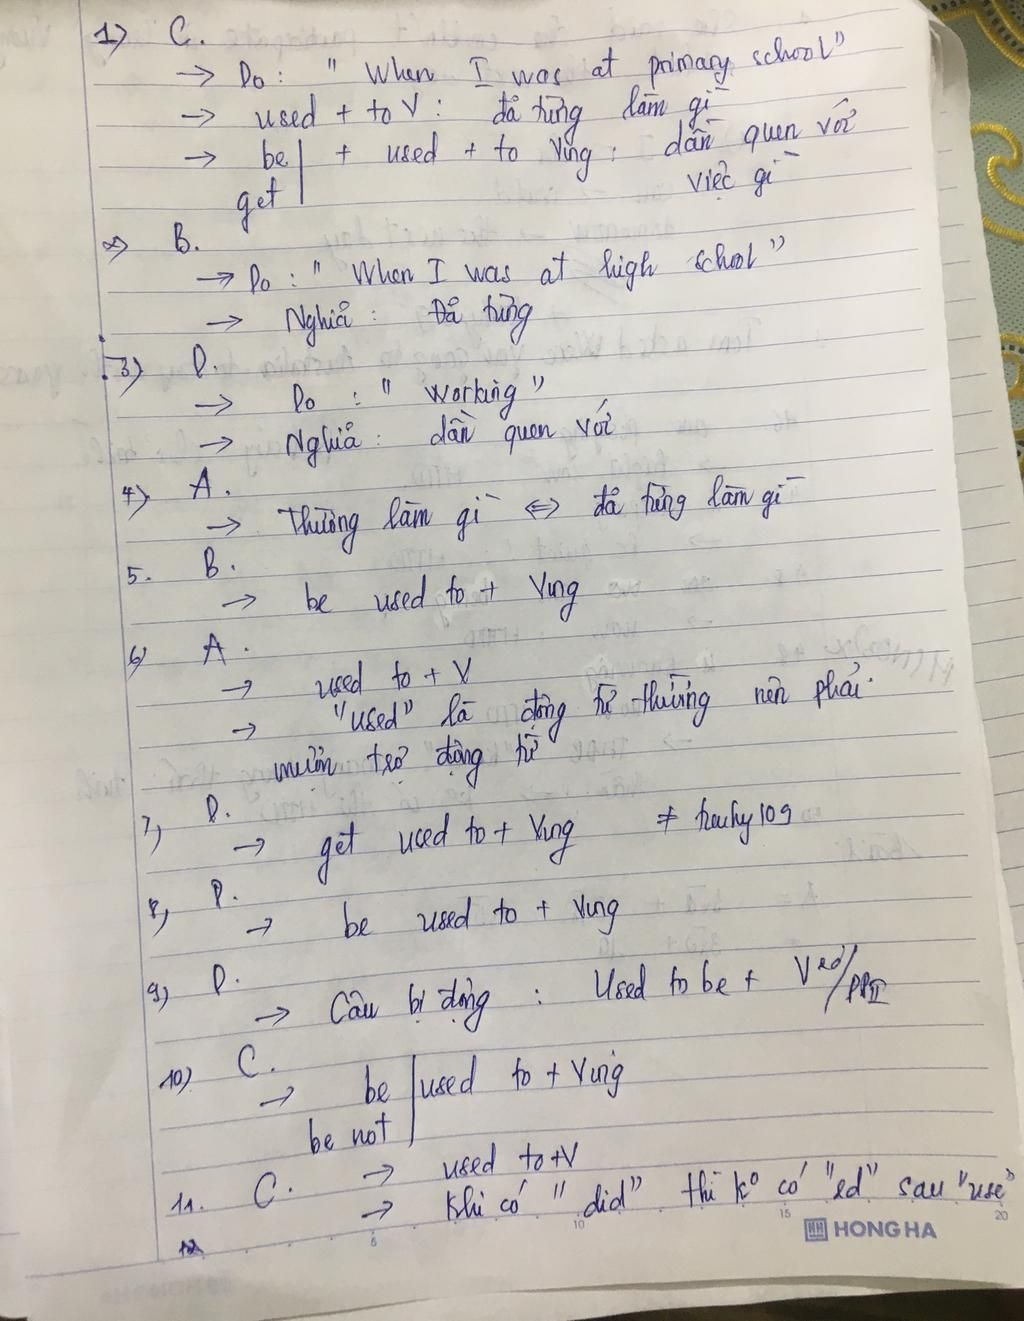 1) C.
→ Do : " When I was at primary school"
→ used + to V : đã từng làm gì
→ be + used + to Ving : dần quen với
get việc gì
2) B.
→ Do : " When I was at high school "
→ Nghĩa : Đã từng
3) D.
→ Do : " working "
→ Nghĩa : dần quen với
4) A.
→ Thường làm gì ⇔ đã từng làm gì
5. B.
→ be used to + Ving
6) A.
→ used to + V
→ "used" là động từ thường nên phải
mượn trợ động từ
7) D.
→ get used to + Ving ≠
8) D.
→ be used to + Ving
9) D.
→ Câu bị động : Used to be + Ved/PPII
10) C.
→ be used to + Ving
be not
11. C. → used to +V
→ Khi có " did" thì ko có "ed" sau "use"
12
5 10 15 20
HH HONG HA